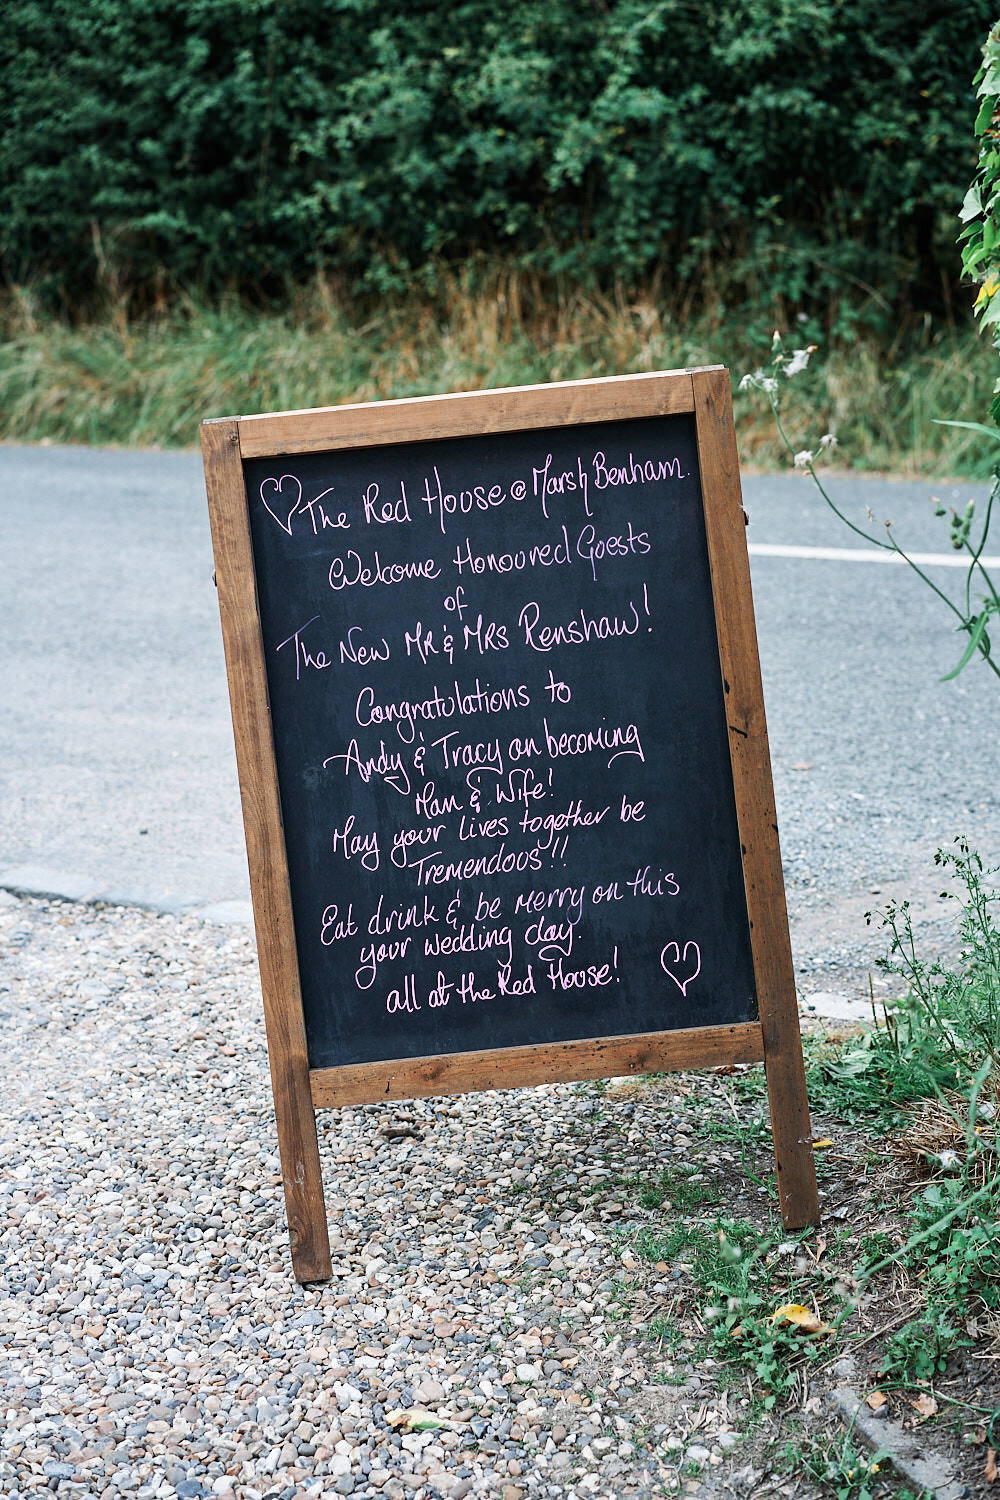 The Red House @ Marsh Benham.
Welcome Honoured Guests
of
The New MR & MRS Renshaw!
Congratulations to
Andy & Tracy on becoming
Man & Wife!
May your lives together be
Tremendous!!
Eat drink & be merry on this
your wedding day.
all at the Red House!